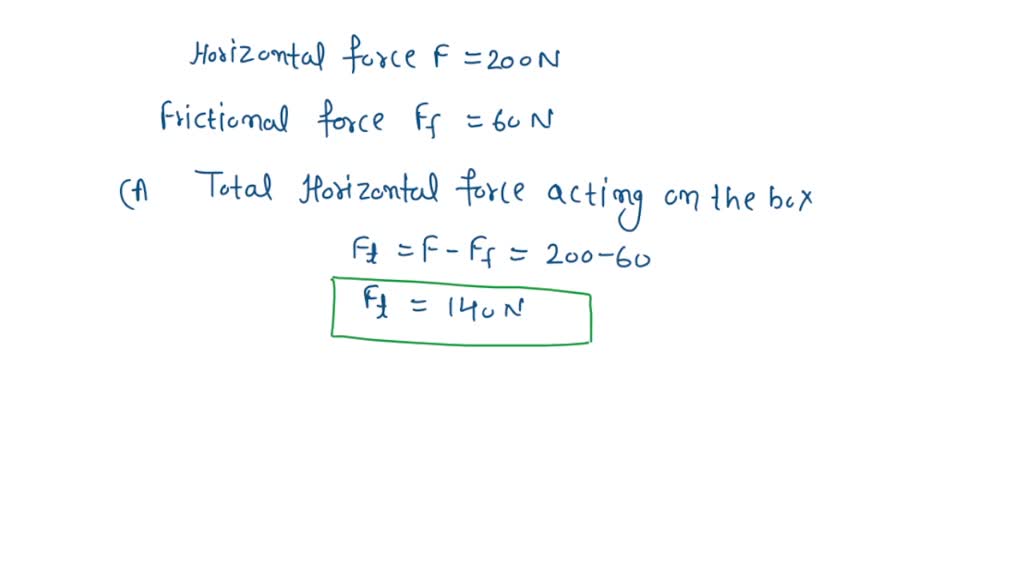 Horizontal force F = 200N
Frictional force Ff = 60 N
(A) Total Horizontal force acting on the box
Ft = F - Ff = 200-60
Ft = 140 N